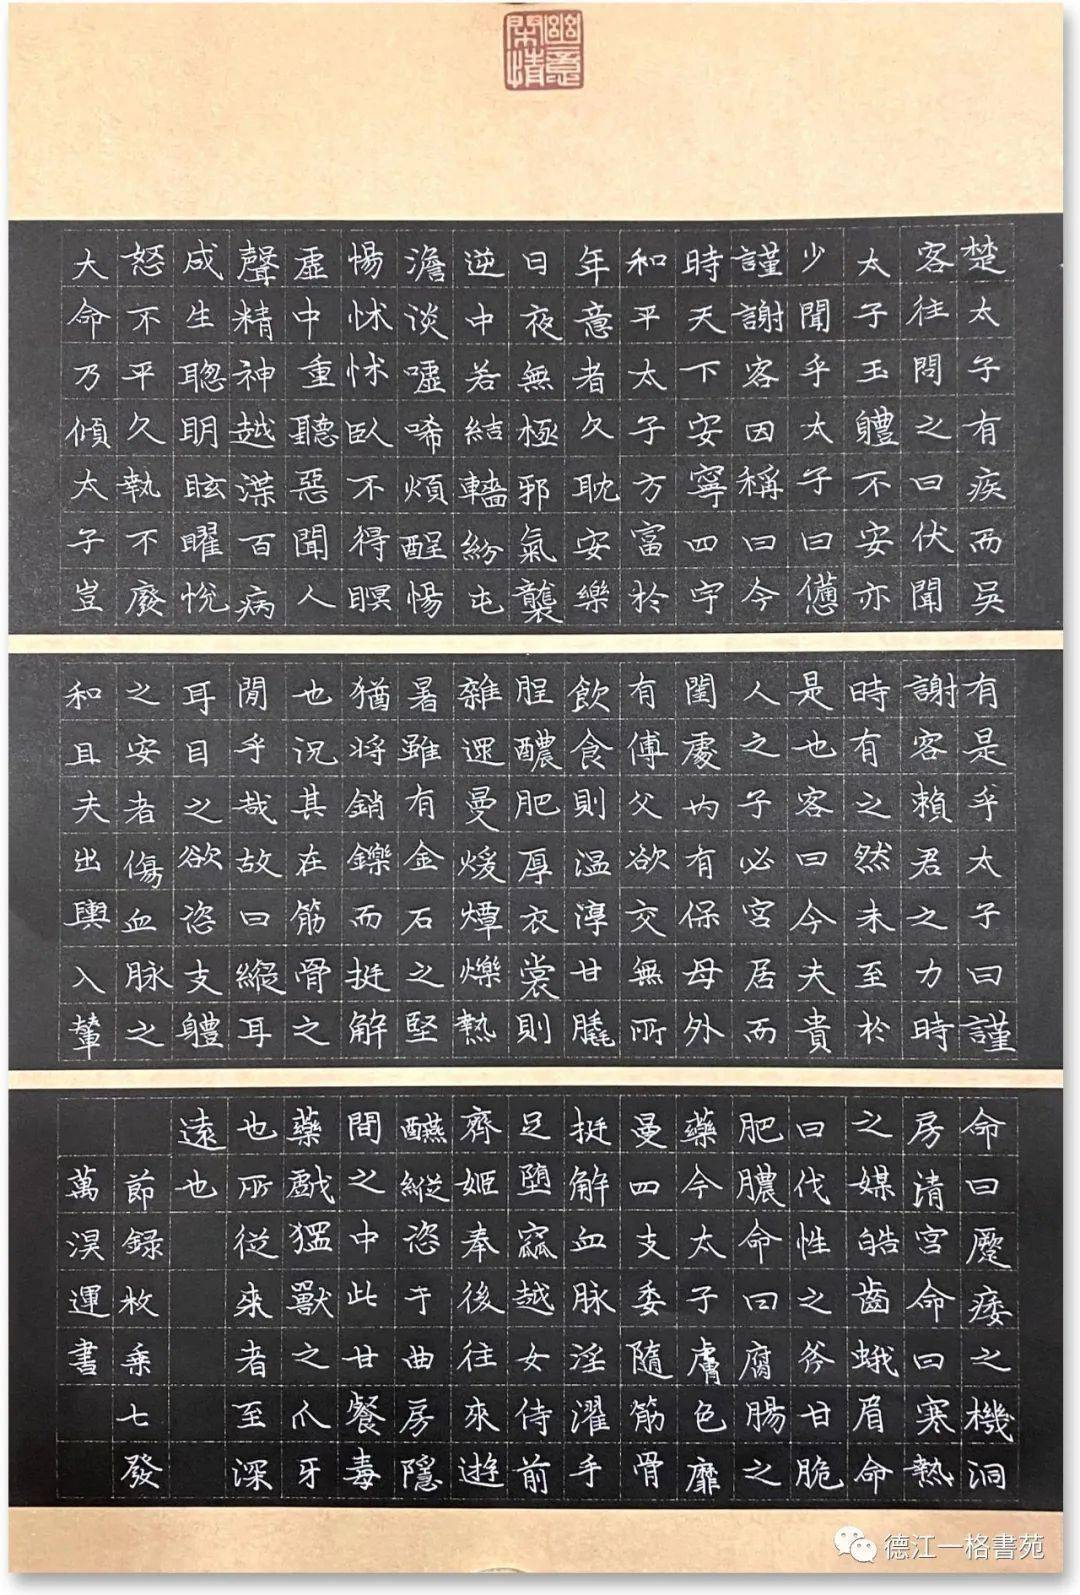 幽意閑情
楚太子有疾而吳
客往問之曰伏聞
太子玉體不安亦
少聞乎太子曰憊
謹謝客因稱曰今
時天下安寧四宇
和平太子方富於
年意者久耽安樂
日夜無極邪氣襲
逆中若結轖紛屯
澹淡噓唏煩酲惕
惕怵怵臥不得瞑
虛中重聽惡聞人
聲精神越渫百病
咸生聰明眩曜悅
怒不平久執不廢
大命乃傾太子豈
有是乎太子曰謹
謝客賴君之力時
時有之然未至於
是也客曰今夫貴
人之子必宮居而
閨處內有保母外
有傅父欲交無所
飲食則溫淳甘膬
脭醲肥厚衣裳則
雜遝曼煖燂爍熱
暑雖有金石之堅
猶將銷鑠而挺解
也況其在筋骨之
閒乎哉故曰縱耳
耳目之欲恣支體
之安者傷血脉之
和且夫出輿入輦
命曰蹷痿之機洞
房清宮命曰寒熱
之媒皓齒蛾眉命
曰伐性之斧甘脆
肥膿命曰腐腸之
藥今太子膚色靡
曼四支委隨筋骨
挺解血脉淫濯手
足墮窳越女侍前
齊姬奉後往來遊
醼縱恣于曲房隱
間之中此甘餐毒
藥戲猛獸之爪牙
也所從來者至深
遠也
節錄枚乘七發
萬淏運書
德江一格書苑